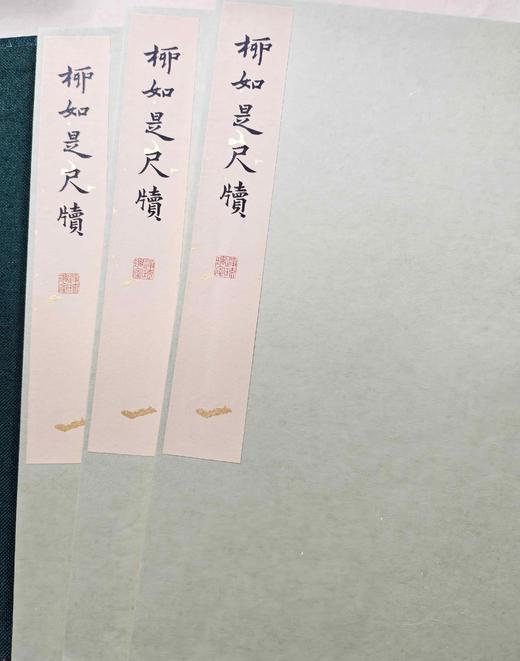 柳如是尺牘
柳如是尺牘
柳如是尺牘